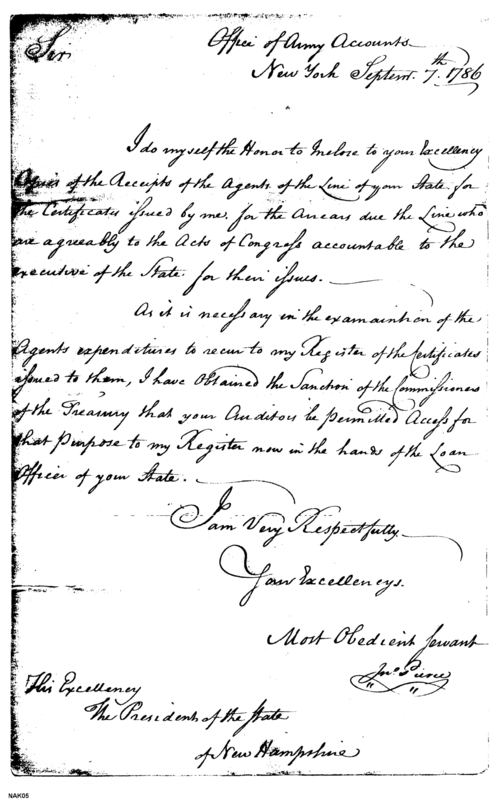 Office of Army Accounts
Sir,
New York Septemr. 7th. 1786
I do myself the Honor to Inclose to your Excellency
Copies of the Receipts of the Agents of the Line of your State for
the Certificates issued by me, for the Arrears due the Line who
are agreeably to the Acts of Congress accountable to the
executive of the State for their issues.
As it is necessary in the examaintion of the
Agents expenditures to recur to my Register of the Certificates
issued to them, I have Obtained the Sanction of the Commissioners
of the Treasury that your Auditors be permitted Access for
that Purpose to my Register now in the hands of the Loan
Officer of your State.
I am Very Respectfully
Your Excellencys.
Most Obedient Servant
Jno. Pierce
His Excellency
The President of the State
of New Hampshire
NAK05